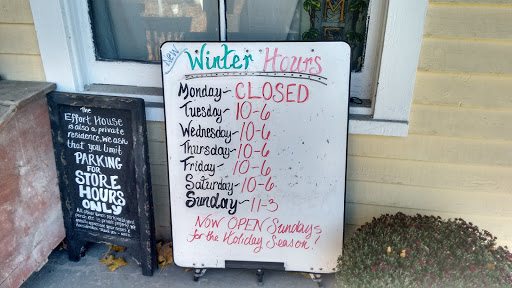 The
Effort House
is also a private
residence, we ask
that you limit
PARKING
for
STORE
HOURS
ONLY
NEW
Winter Hours
Monday~ CLOSED
Tuesday~ 10-6
Wednesday~ 10-6
Thursday~ 10-6
Friday~ 10-6
Saturday~ 10-6
Sunday~ 11-3
NOW OPEN Sundays
for the Holiday Season!